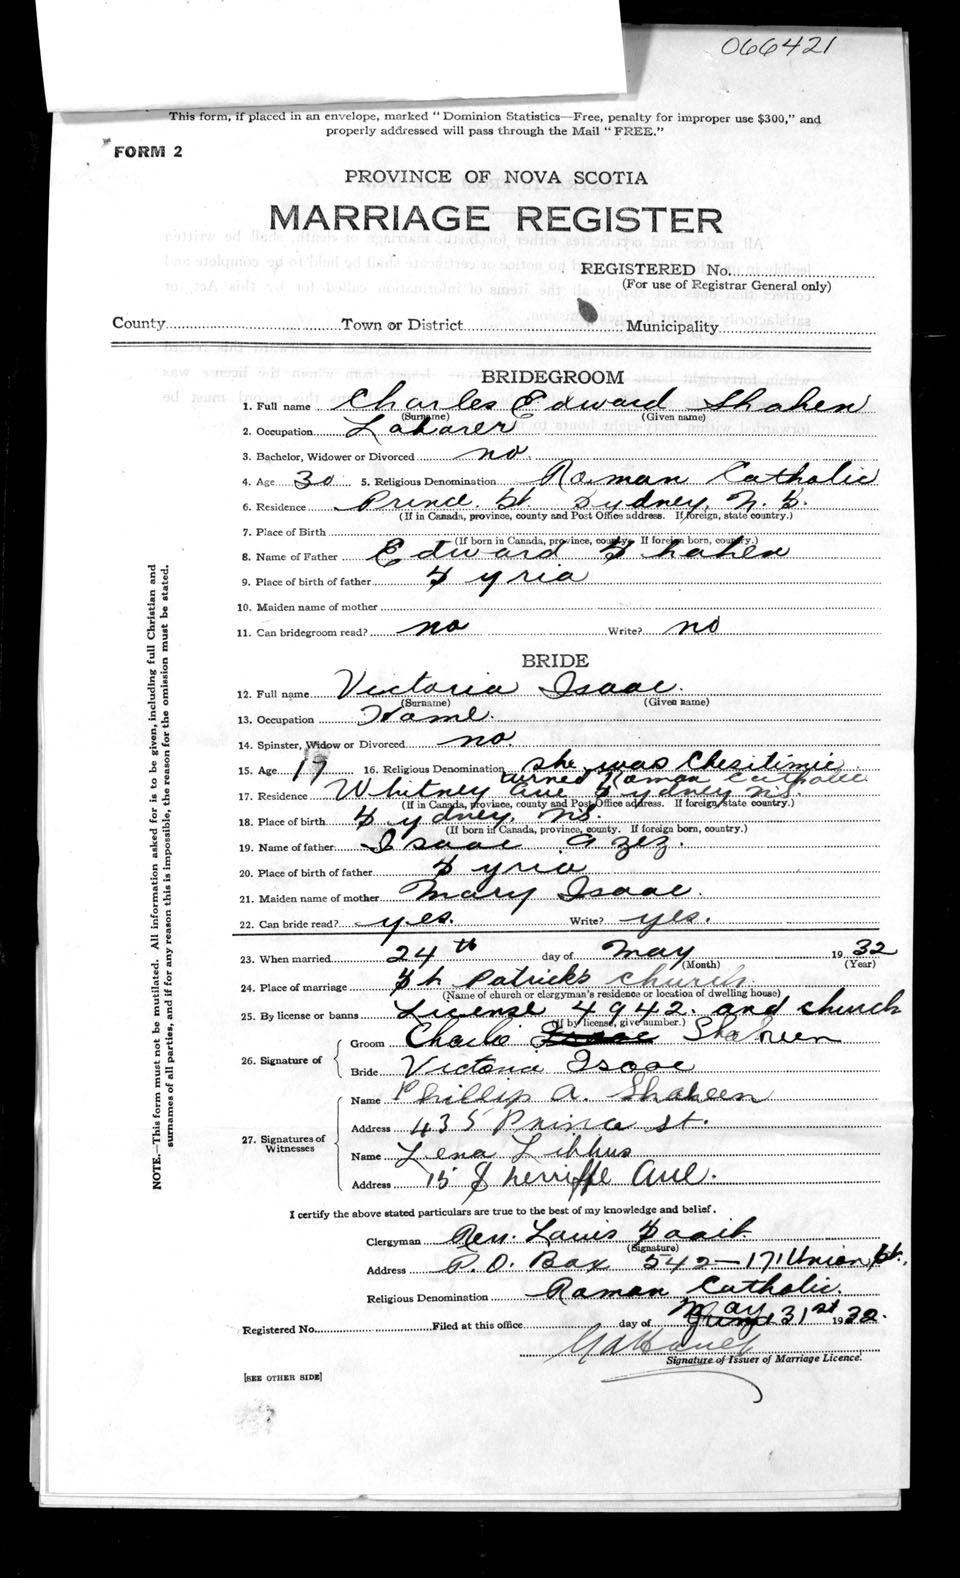 066421
This form, if placed in an envelope, marked "Dominion Statistics—Free, penalty for improper use $300," and
properly addressed will pass through the Mail "FREE."
FORM 2
PROVINCE OF NOVA SCOTIA
MARRIAGE REGISTER
REGISTERED No.
(For use of Registrar General only)
County Town or District Municipality
BRIDEGROOM
1. Full name Charles Edward Shahen
(Surname) (Given name)
2. Occupation Laborer
3. Bachelor, Widower or Divorced no.
4. Age 30 5. Religious Denomination Roman Catholic
6. Residence Prince. St. Sydney, N. S.
(If in Canada, province, county and Post Office address. If foreign, state country.)
7. Place of Birth
(If born in Canada, province, county. If foreign born, country.)
8. Name of Father Edward Shahen
9. Place of birth of father Syria
10. Maiden name of mother
11. Can bridegroom read? no Write? no
BRIDE
12. Full name Victoria Isaac.
(Surname) (Given name)
13. Occupation Home.
14. Spinster, Widow or Divorced no.
15. Age 17 16. Religious Denomination she was
turned Roman Catholic
17. Residence Whitney ave Sydney N.S.
(If in Canada, province, county and Post Office address. If foreign, state country.)
18. Place of birth Sydney, N.S.
(If born in Canada, province, county. If foreign born, country.)
19. Name of father Isaac Azez.
20. Place of birth of father Syria
21. Maiden name of mother Mary Isaac.
22. Can bride read? yes. Write? yes.
23. When married 24th day of May 1932
(Month) (Year)
24. Place of marriage St Patricks church
(Name of church or clergyman's residence or location of dwelling house)
25. By license or banns License 4942. and church
(If by license, give number.)
26. Signature of
Groom Charlie Isaac Shaheen
Bride Victoria Isaac
27. Signatures of Witnesses
Name Phillip A. Shaheen
Address 435 Prince St.
Name Lena Libbus
Address 15 Sherriffe Ave.
I certify the above stated particulars are true to the best of my knowledge and belief.
Clergyman Rev. Louis
(Signature)
Address P.O. Box 542—171 Union St.,
Religious Denomination Roman Catholic.
May
Registered No. Filed at this office day of June 31st 1932.
Signature of Issuer of Marriage Licence.
[SEE OTHER SIDE]
NOTE.—This form must not be mutilated. All information asked for is to be given, including full Christian and
surnames of all parties, and if for any reason this is impossible, the reason for the omission must be stated.